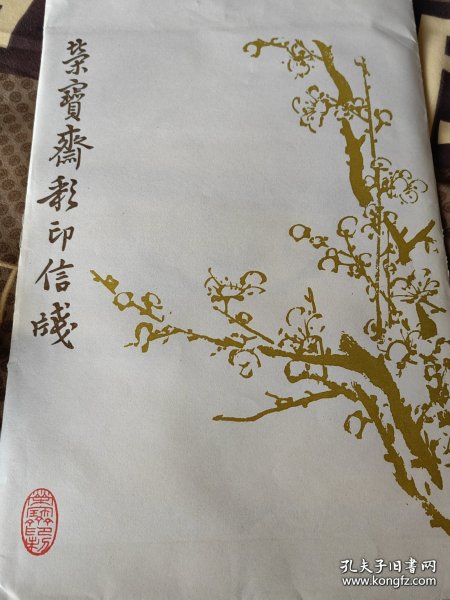 榮寶齋彩印信牋
孔夫子旧书网
www.kongfz.com